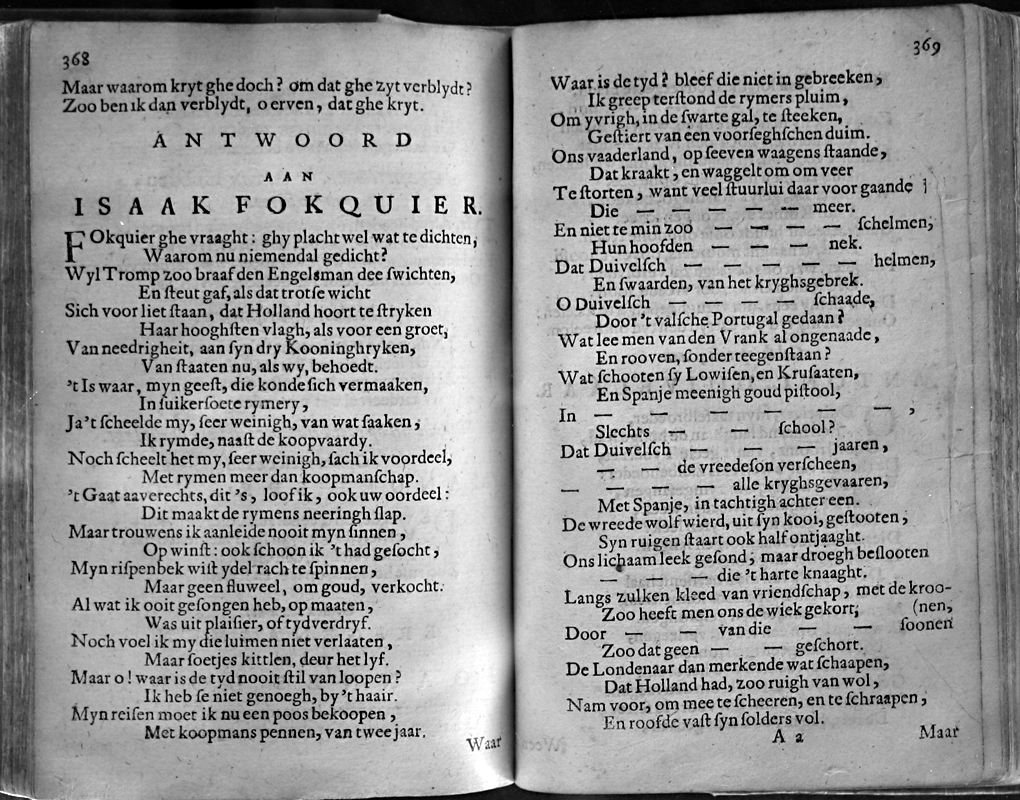 368
Maar waarom kryt ghe doch? om dat ghe zyt verblydt?
Zoo ben ik dan verblydt, o erven, dat ghe kryt.
ANTWOORD
AAN
ISAAK FOKQUIER.
FOkquier ghe vraaght: ghy placht wel wat te dichten,
Waarom nu niemendal gedicht?
Wyl Tromp zoo braaf den Engelsman dee ſwichten,
En ſteut gaf, als dat trotſe wicht
Sich voor liet ſtaan, dat Holland hoort te ſtryken
Haar hooghſten vlagh, als voor een groet,
Van needrigheit, aan ſyn dry Kooninghryken,
Van ſtaaten nu, als wy, behoedt.
't Is waar, myn geeſt, die konde ſich vermaaken,
In ſuikerſoete rymery,
Ja't ſcheelde my, ſeer weinigh, van wat ſaaken,
Ik rymde, naaſt de koopvaardy.
Noch ſcheelt het my, ſeer weinigh, ſach ik voordeel,
Met rymen meer dan koopmanſchap.
't Gaat aaverechts, dit 's, loof ik, ook uw oordeel:
Dit maakt de rymens neeringh ſlap.
Maar trouwens ik aanleide nooit myn ſinnen,
Op winſt: ook ſchoon ik 't had geſocht,
Myn riſpenbek wiſt ydel rach te ſpinnen,
Maar geen fluweel, om goud, verkocht.
Al wat ik ooit geſongen heb, op maaten,
Was uit plaiſier, of tydverdryf.
Noch voel ik my die luimen niet verlaaten,
Maar ſoetjes kittlen, deur het lyf.
Maar o! waar is de tyd nooit ſtil van loopen?
Ik heb ſe niet genoegh, by 't haair.
Myn reiſen moet ik nu een poos bekoopen,
Met koopmans pennen, van twee jaar.
Waar
369
Waar is de tyd? bleef die niet in gebreeken,
Ik greep terſtond de rymers pluim,
Om yvrigh, in de ſwarte gal, te ſteeken,
Geſtiert van een voorſeghſchen duim.
Ons vaaderland, op ſeeven waagens ſtaande,
Dat kraakt, en waggelt om om veer
Te ſtorten, want veel ſtuurlui daar voor gaande;
Die — — — — — meer.
En niet te min zoo — — — — ſchelmen,
Hun hoofden — — — nek.
Dat Duivelſch — — — — — helmen,
En ſwaarden, van het kryghsgebrek.
O Duivelſch — — — — ſchaade,
Door 't valſche Portugal gedaan?
Wat lee men van den Vrank al ongenaade,
En rooven, ſonder teegenſtaan?
Wat ſchooten ſy Lowiſen, en Kruſaaten,
En Spanje meenigh goud piſtool,
In — — — — — — ,
Slechts — — ſchool?
Dat Duivelſch — — — jaaren,
— — de vreedeſon verſcheen,
— — — — alle kryghsgevaaren,
Met Spanje, in tachtigh achter een.
De wreede wolf wierd, uit ſyn kooi, geſtooten,
Syn ruigen ſtaart ook half ontjaaght.
Ons lichaam leek geſond; maar droegh beſlooten
— — — die 't harte knaaght.
Langs zulken kleed van vriendſchap, met de kroo-
Zoo heeft men ons de wiek gekort; (nen,
Door — — van die — ſoonen
Zoo dat geen — — geſchort.
De Londenaar dan merkende wat ſchaapen,
Dat Holland had, zoo ruigh van wol,
Nam voor, om mee te ſcheeren, en te ſchraapen,
En roofde vaſt ſyn ſolders vol.
A a
Maar